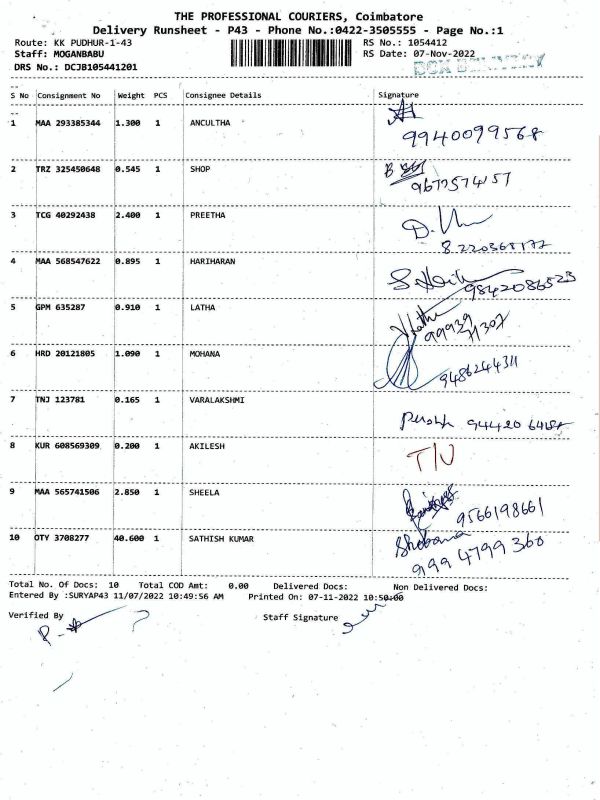 THE PROFESSIONAL COURIERS, Coimbatore
Delivery Runsheet - P43 - Phone No.:0422-3505555 - Page No.:1
Route: KK PUDHUR-1-43 RS No.: 1054412
Staff: MOGANBABU RS Date: 07-Nov-2022
DRS No.: DCJB105441201 DOX DELIVERY
S No Consignment No Weight PCS Consignee Details Signature
1 MAA 293385344 1.300 1 ANCULTHA
9940099568
2 TRZ 325450648 0.545 1 SHOP
9677574157
3 TCG 40292438 2.400 1 PREETHA
8220368172
4 MAA 568547622 0.895 1 HARIHARAN
9842086523
5 GPM 635287 0.910 1 LATHA Latha
99939
71307
6 HRD 20121805 1.090 1 MOHANA
9486244311
7 TNJ 123781 0.165 1 VARALAKSHMI
8 KUR 608569309 0.200 1 AKILESH T/U
9 MAA 565741506 2.850 1 SHEELA
9566198661
10 OTY 3708277 40.600 1 SATHISH KUMAR Shobana
9994799360
Total No. Of Docs: 10 Total COD Amt: 0.00 Delivered Docs: Non Delivered Docs:
Entered By :SURYAP43 11/07/2022 10:49:56 AM Printed On: 07-11-2022 10:50:00
Verified By Staff Signature